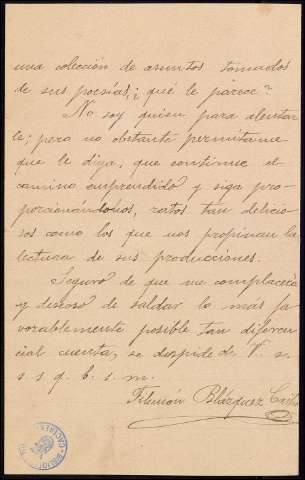 una colección de asuntos tomados
de sus poesías, ¿qué le parece?
No soy quien para alentar
le; pero no obstante permítame
que le diga, que continue el
camino emprendido y siga pro-
porcionándonos, ratos tan delicio-
sos como los que nos propinan la
lectura de sus producciones.
Seguro de que me complacera
y deseoso de saldar lo mas fa
vorablemente posible tan diferen-
cial cuenta, se despide de V. s.
s. s q. b. s. m.
Filemón Blázquez Castro
CACERES